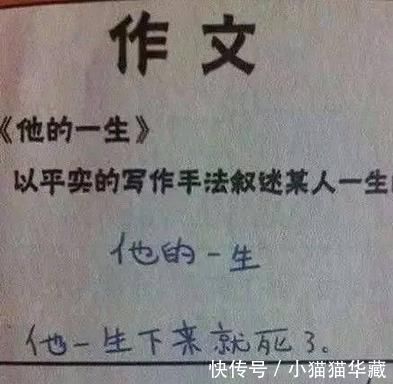 作文
《他的一生》
以平实的写作手法叙述某人一生
他的一生
他一生下来就死了。
快传号/小猫猫华藏